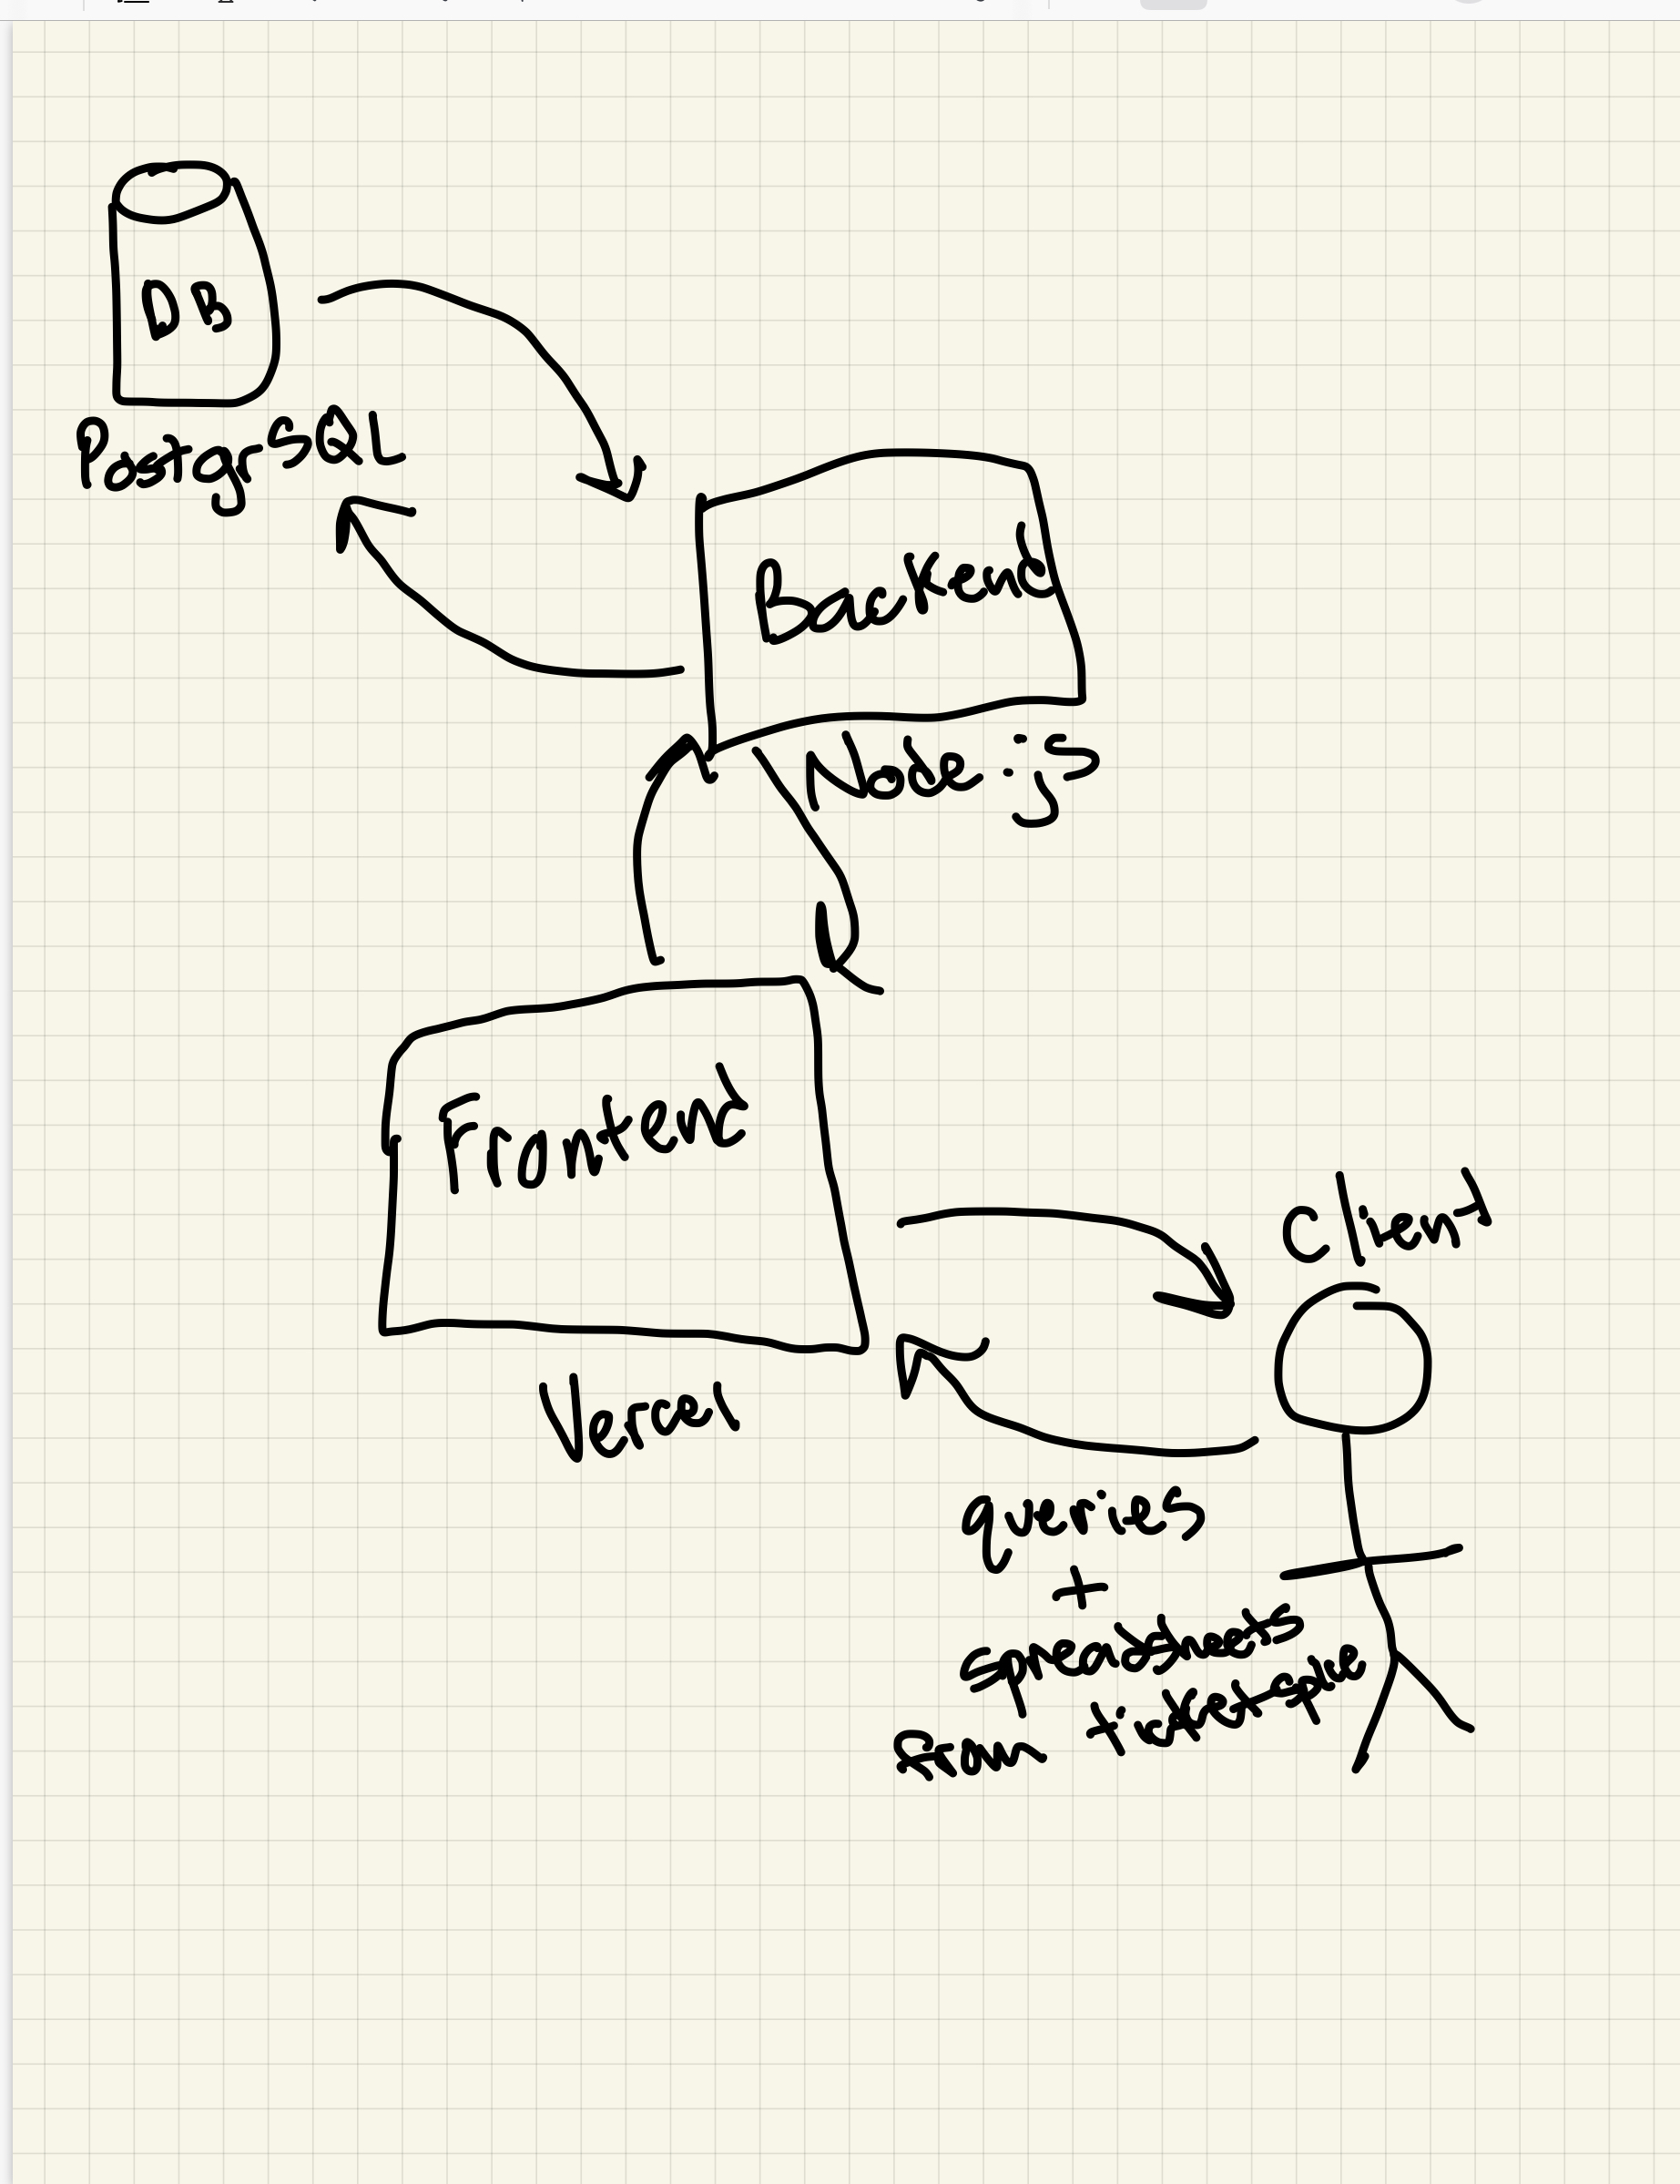 DB
PostgrSQL
Backend
Node.js
Frontend
Vercel
Client
queries
+
spreadsheets
from ticketspice